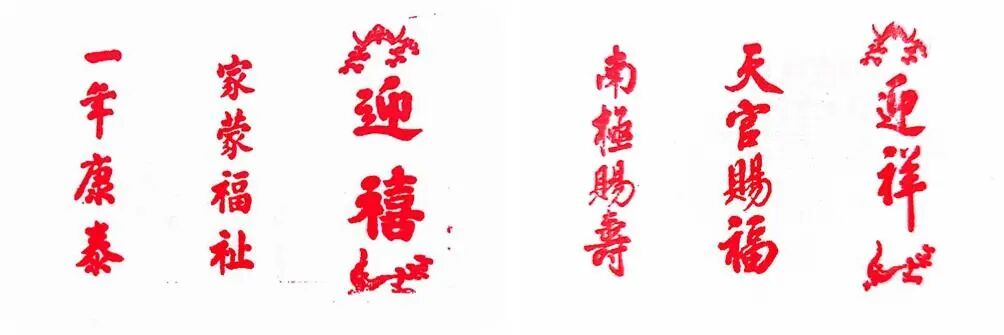 迎祥
天官賜福
南極賜壽
迎禧
家蒙福祉
一年康泰